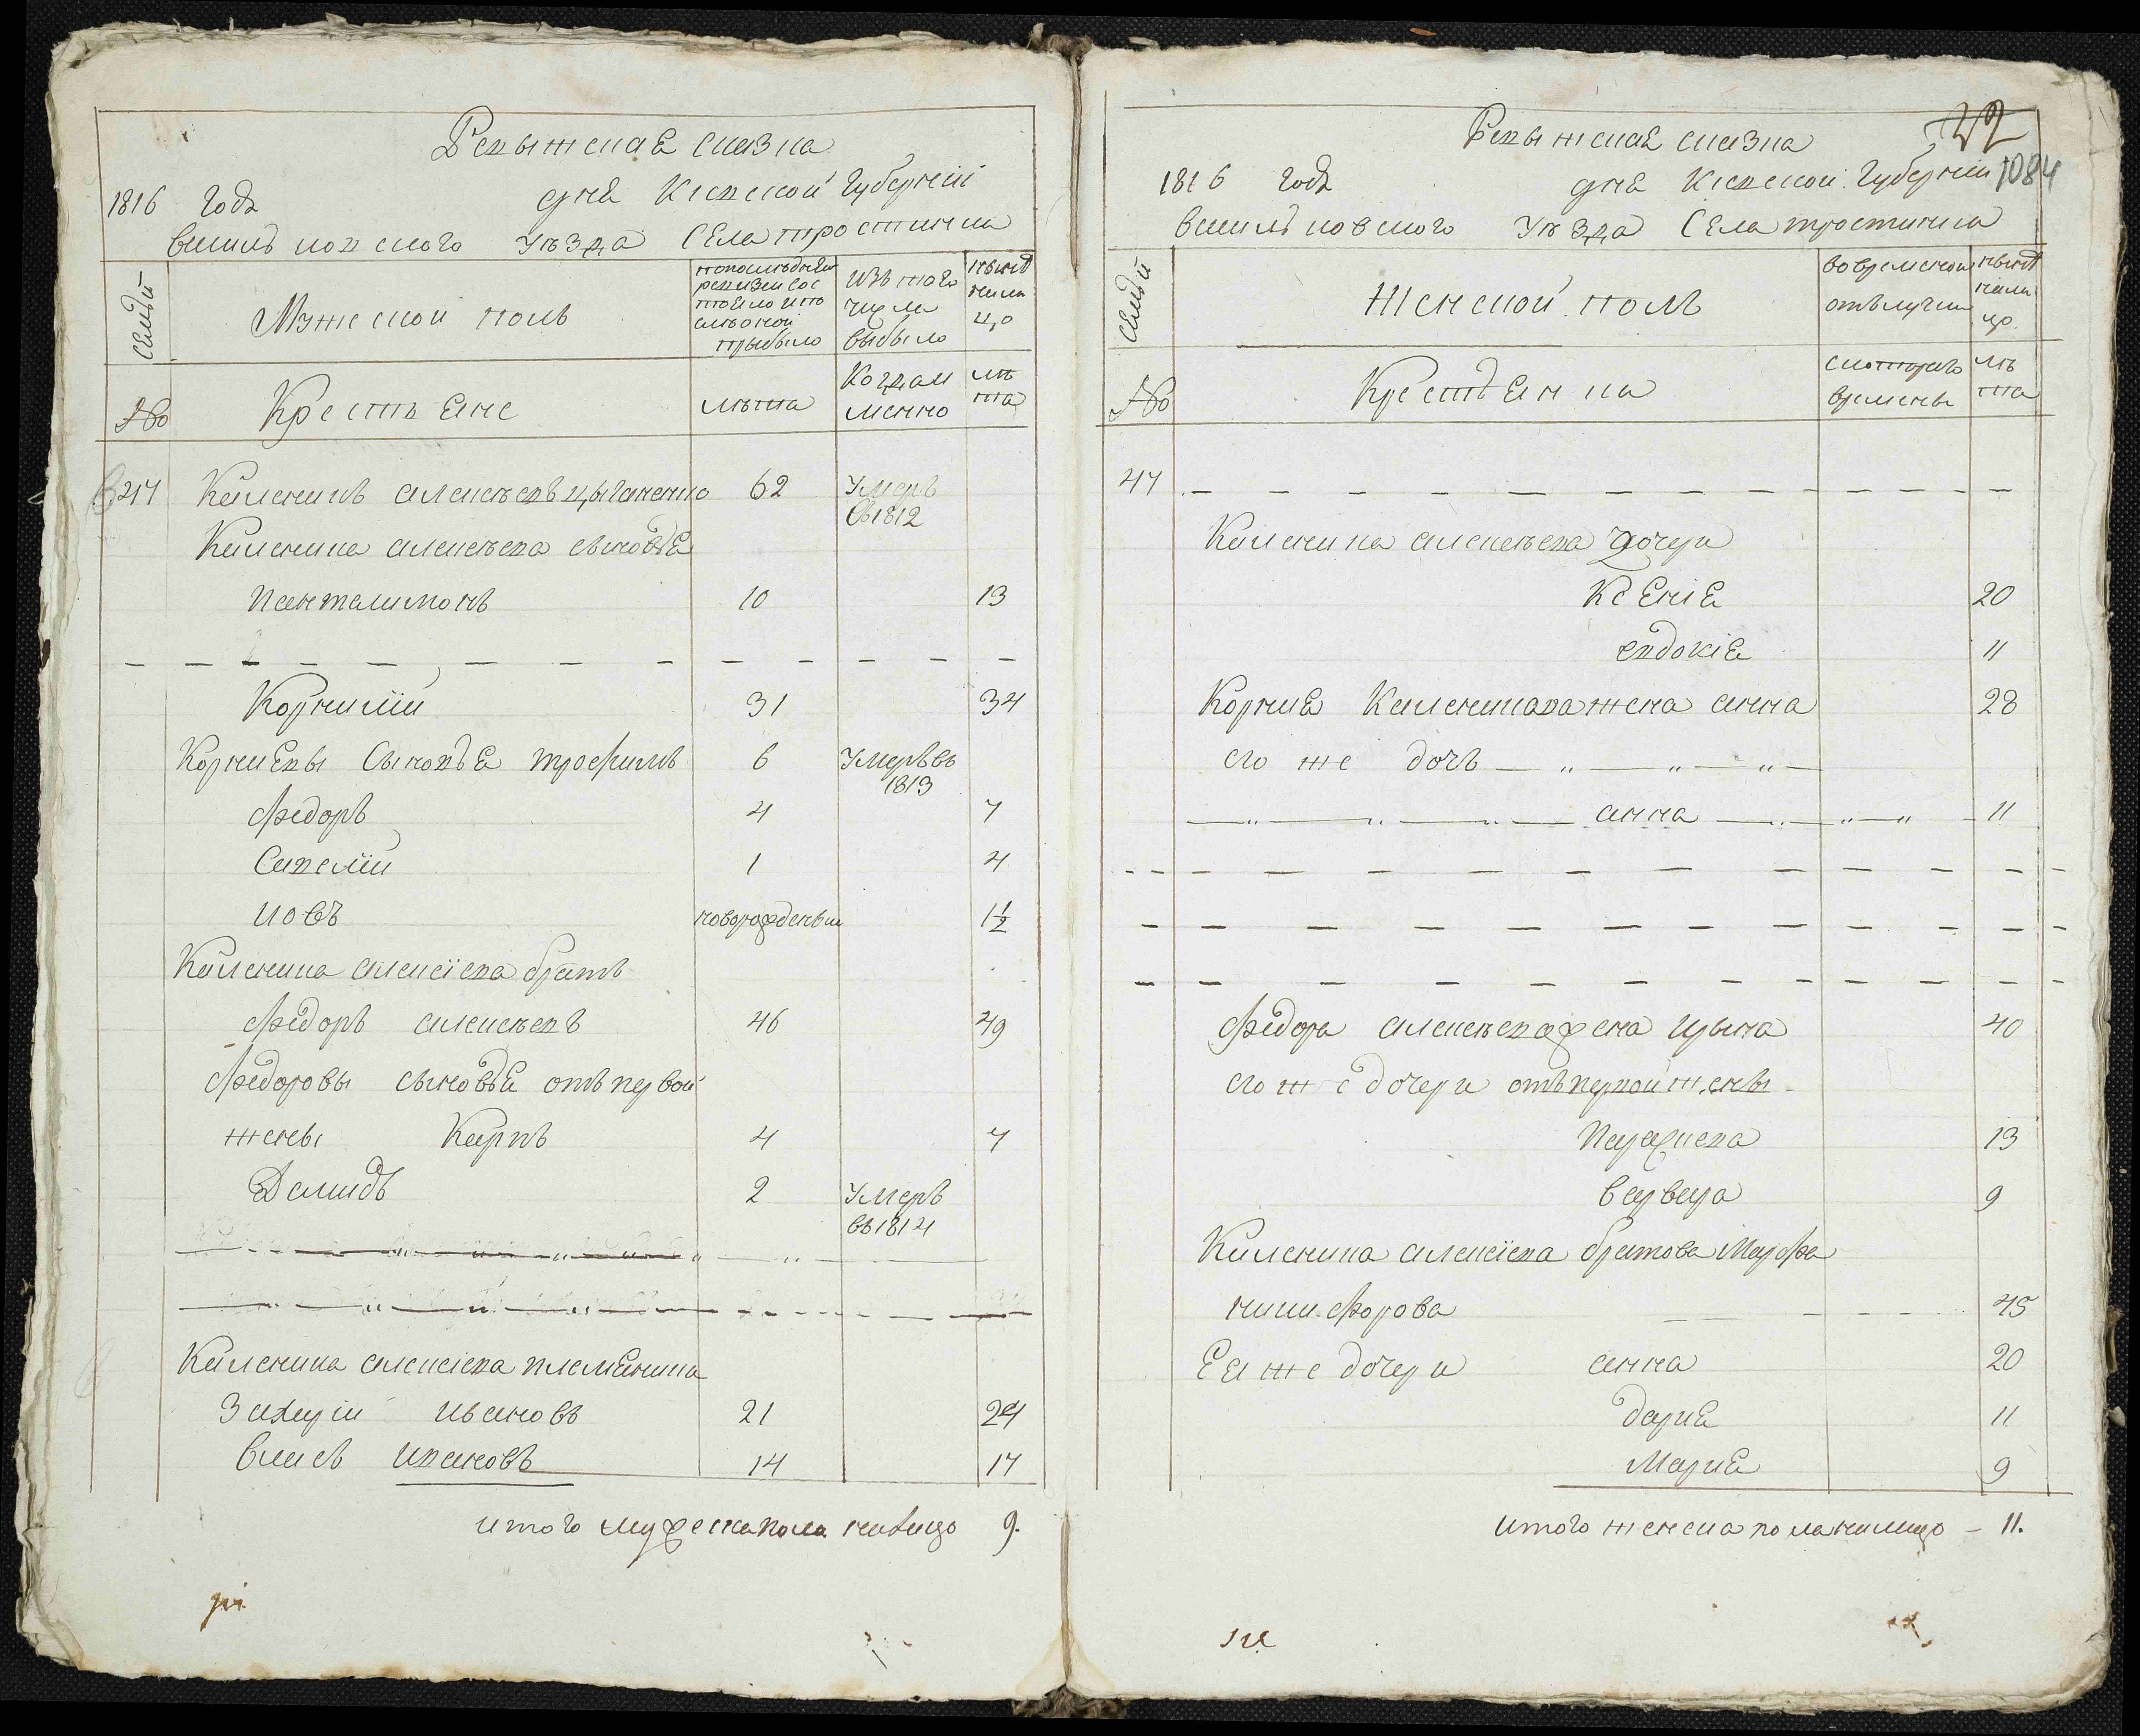 Ревыжская сказка
1816 Года дня Киевской Губернiи
васильковского Уъзда Села тростинка
семьи
Мужской полъ
попослъдней ревизiи состояло ипослъоной прыбыло
изътого числа выбыло
нынъ налицо
№
Крестьяне
лъта
Когдаименно
лъта
47 Каленикъ алексъевъ цыганенко 62 Умеръ
въ1812
Каленика алексъева сыновья
Пантелимонъ 10 13
Корнилiй 31 34
Корниевы Сыновья трофимъ 6 Умеръвъ
1813
Федоръ 4 7
Савелiй 1 4
Иовъ новорожденый 1½
Каленика алексiева братъ
Федоръ алексъевъ 46 49
Федоровы сыновья отъпервой
жены Карпъ 4 7
Демидъ 2 Умеръ
въ1814
Каленика алексiева племеника
Захарiй ивановъ 21 24
власъ Ивановъ 14 17
итого мужескаполу налицо 9.
22
1084
Ревыжская сказка
1816 Года дня Киевской Губернiи
василъковского Уъзда Села тростинка
семьи
Женской полъ
вовременой отълучки
нынъ налицо
№
Крестьянка
скоторого времены
лъта
47
Каленика алексъева дочери
Ксения 20
евдокiя 11
Корния Каленикова жена анна 28
его же дочъ
анна 11
Федора алексъева жена Ирына 40
его же дочери отъпервой жены
Параскева 13
варвара 9
Каленика алексiева братова Марфа
никифорова 45
Ея же дочери анна 20
дария 11
Мария 9
итого женска пола налицо – 11.